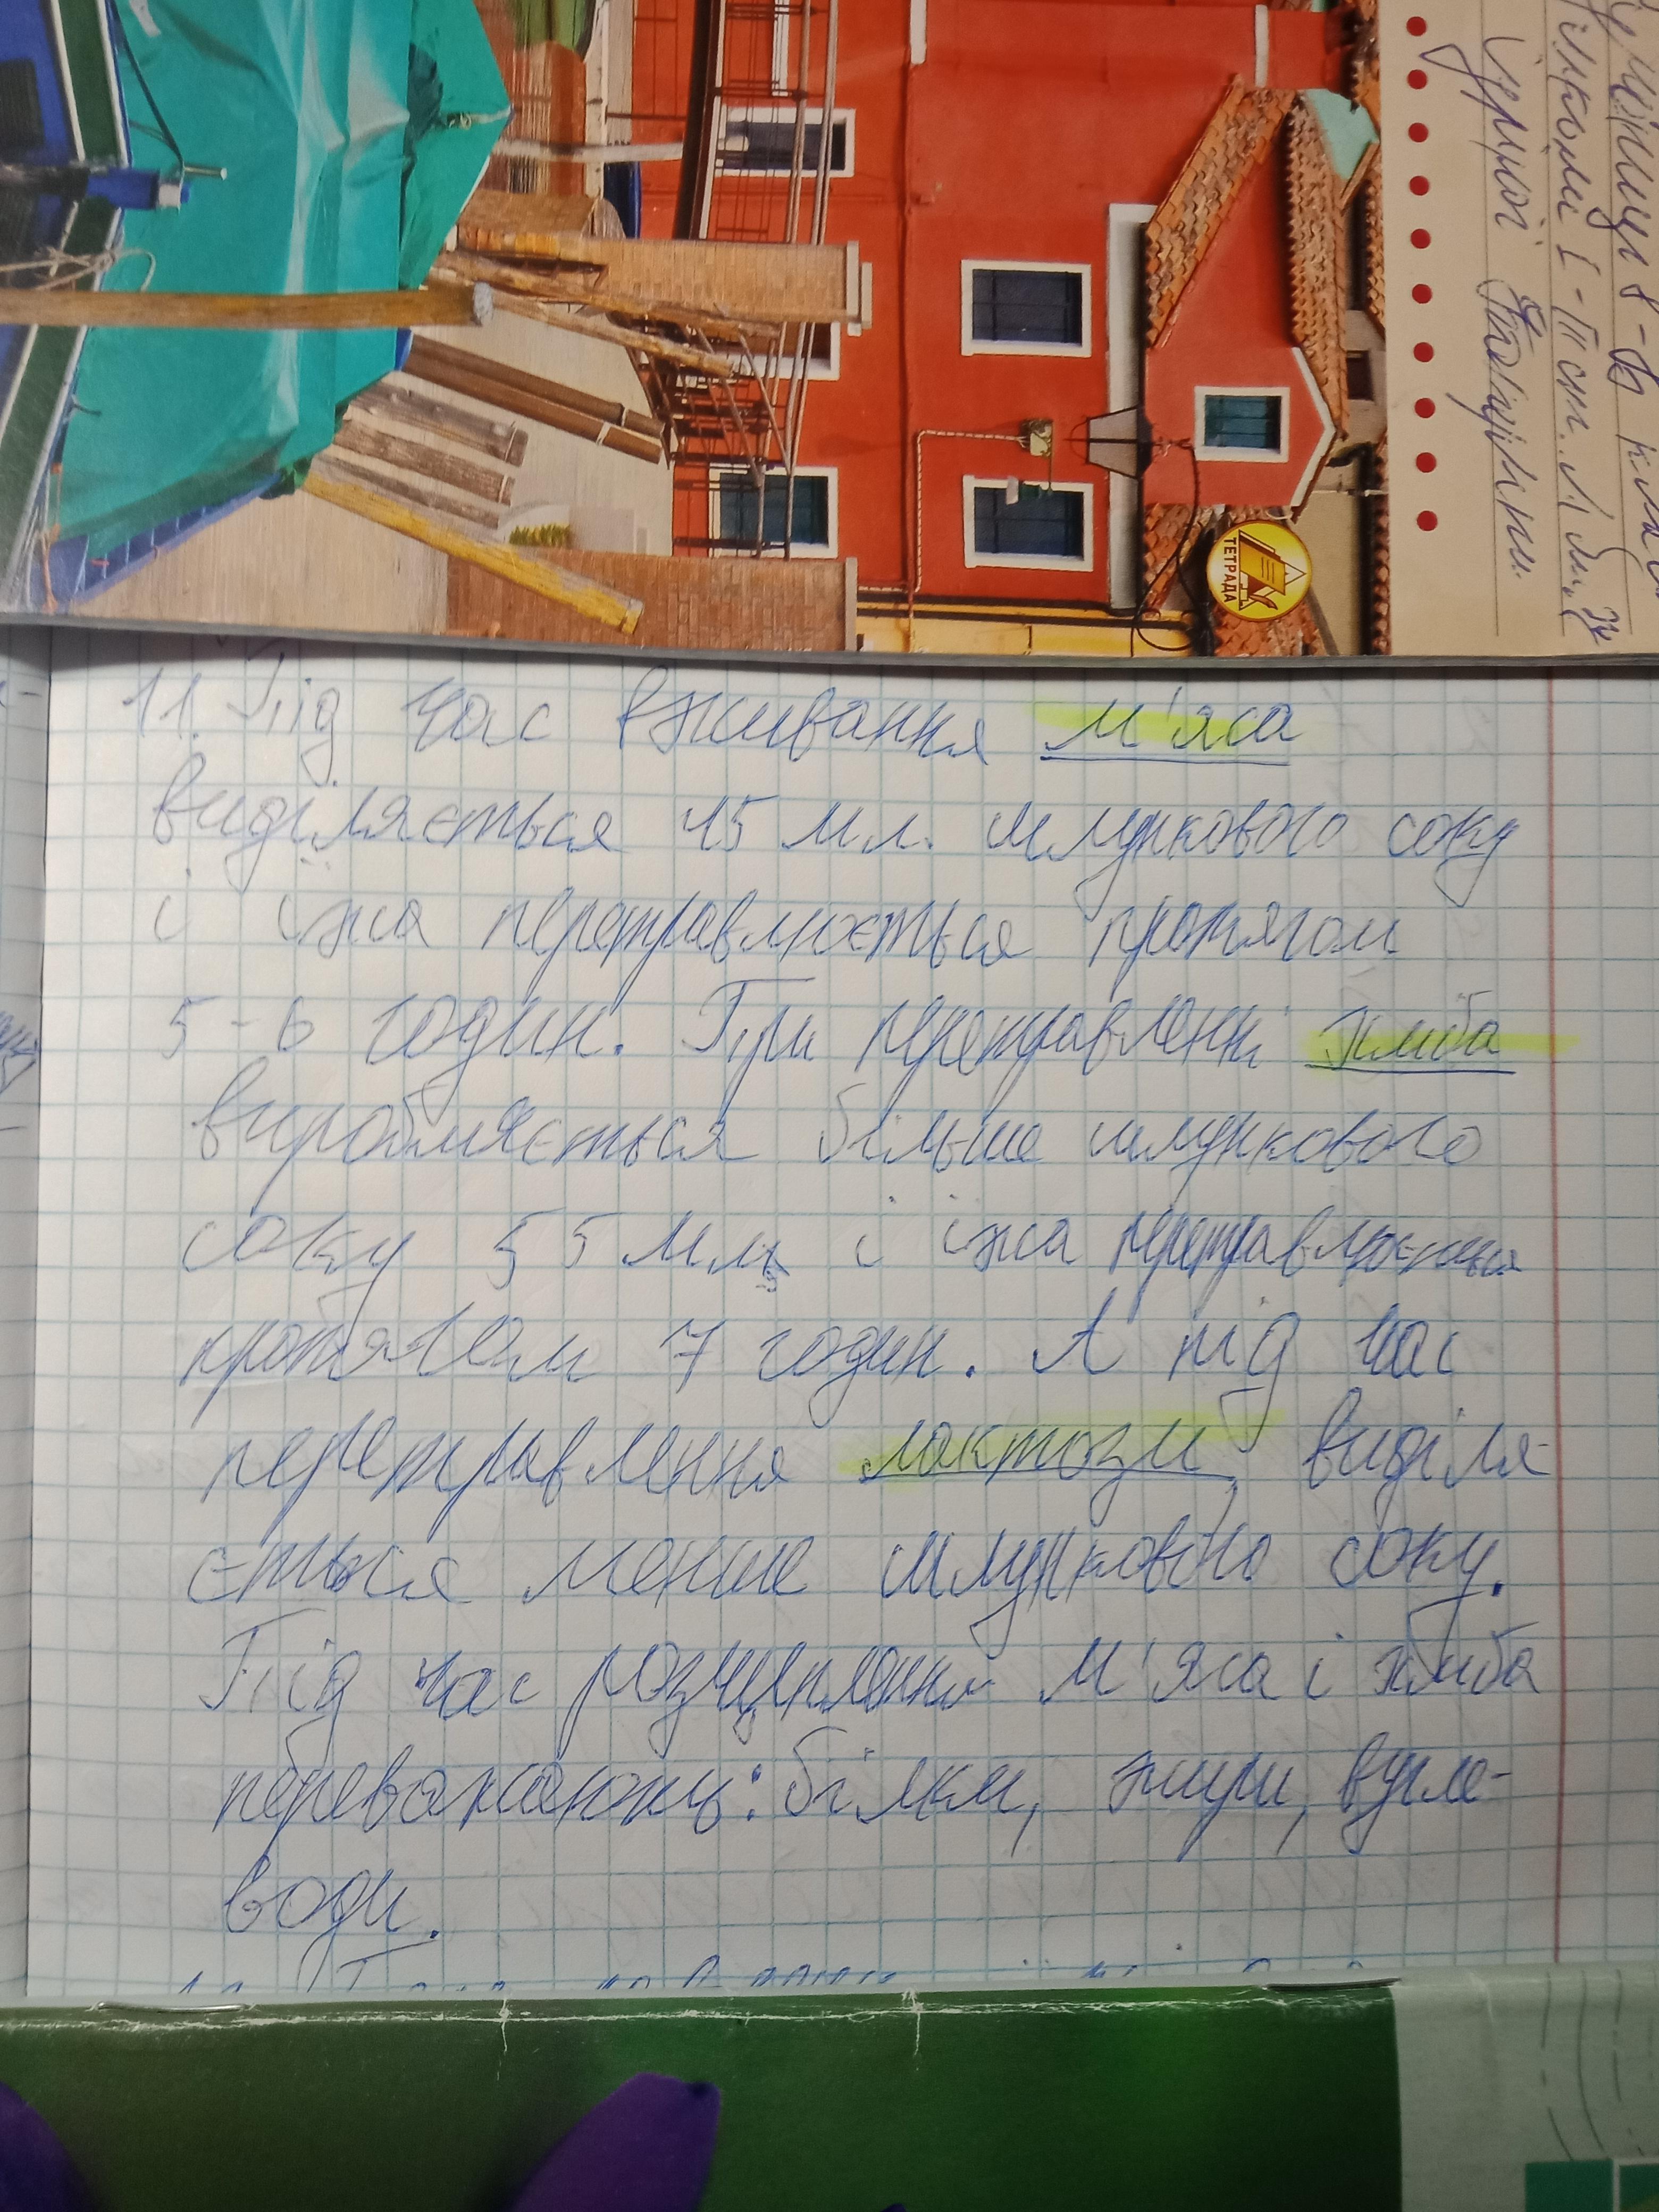 11. Під час вживання м'яса
виділяється 45 мл. шлункового соку
і їжа перетравлюється протягом
5-6 годин. При перетравленні хліба
виробляється більше шлункового
соку 55 мл і їжа перетравлюється
протягом 7 годин. А під час
перетравлення лактози, виділя-
ється менше шлункового соку.
Під час розщеплення м'яса і хліба
переважають: білки, жири, вугле-
води.
ТЕТРАДА
учениці 8-В
школи І-ІІІ ст.